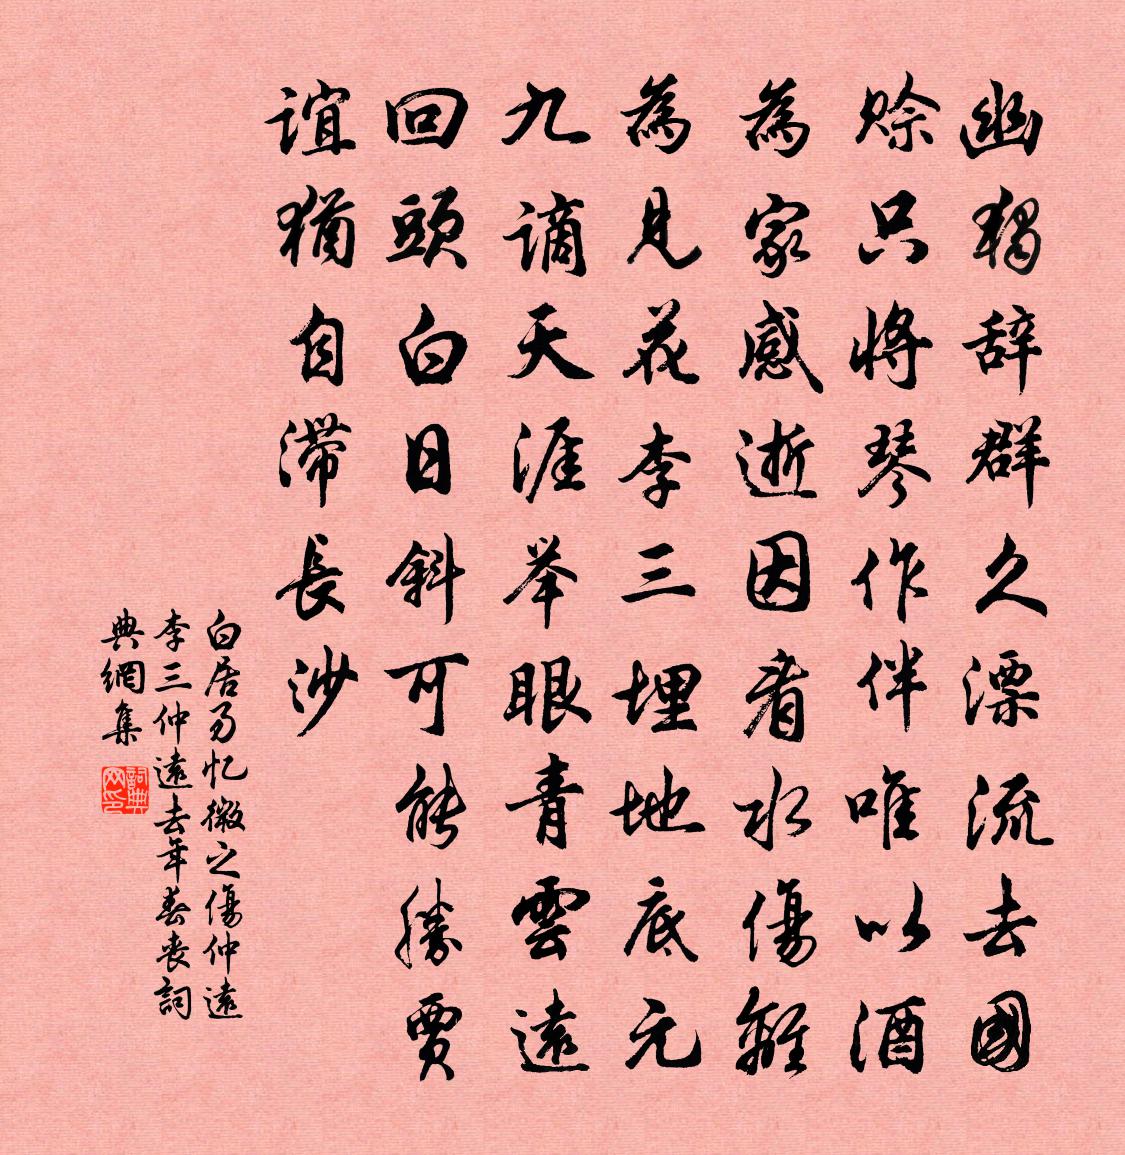 幽獨辞群久漂流去國
賒只將琴作伴唯以酒
為家感逝因看水傷離
為見花李三埋地底元
九謫天涯举眼青雲遠
回頭白日斜可能勝賈
誼猶自滯長沙
白居易忆微之傷仲遠
李三仲遠去年春丧詞
典網集
詞典
网印